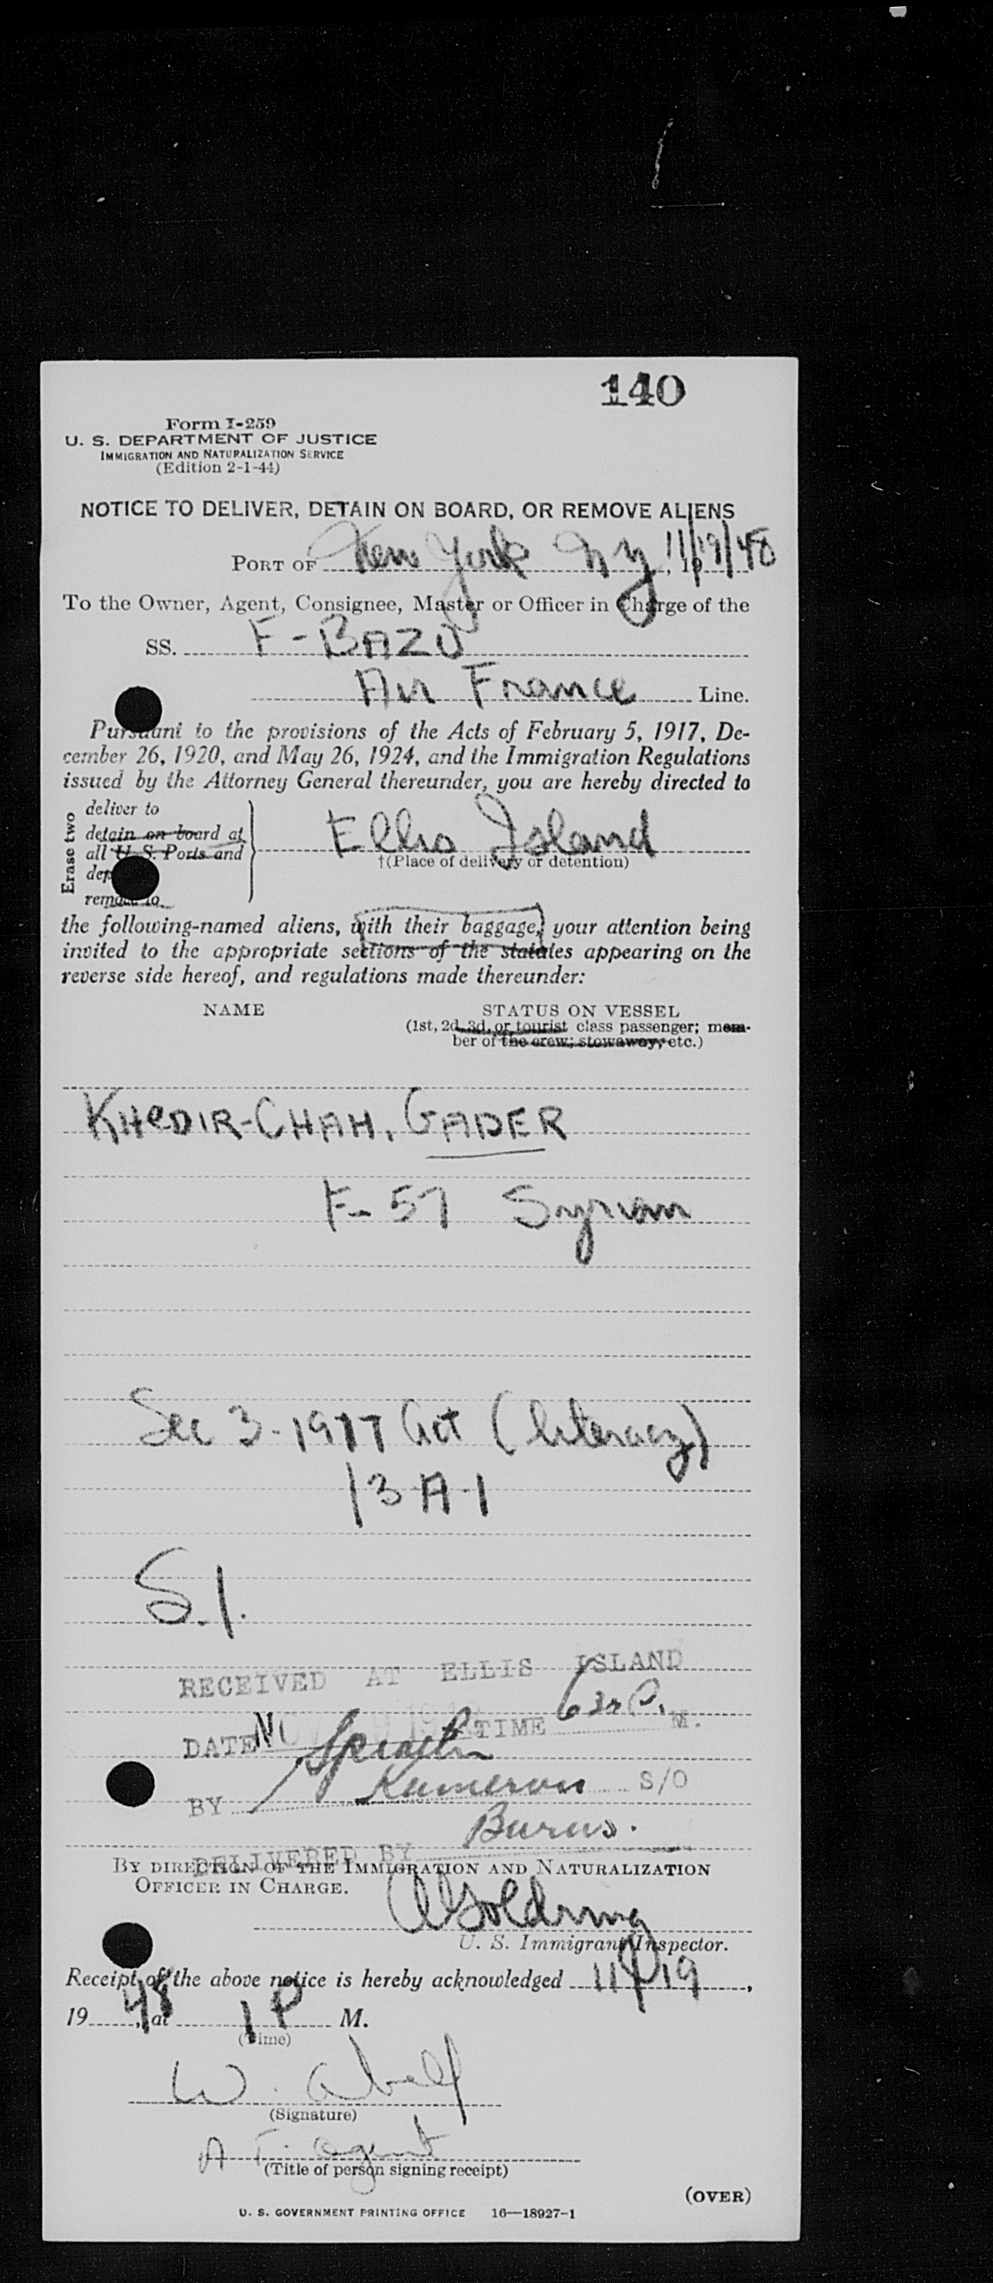 140
Form I-259
U. S. DEPARTMENT OF JUSTICE
IMMIGRATION AND NATURALIZATION SERVICE
(Edition 2-1-44)
NOTICE TO DELIVER, DETAIN ON BOARD, OR REMOVE ALIENS
PORT OF New York N Y, 19 11/19/48
To the Owner, Agent, Consignee, Master or Officer in Charge of the
SS. F-BAZU
Air France Line.
Pursuant to the provisions of the Acts of February 5, 1917, De-
cember 26, 1920, and May 26, 1924, and the Immigration Regulations
issued by the Attorney General thereunder, you are hereby directed to
Erase two
deliver to
detain on board at
all U. S. Ports and
dep
remove to
Ellis Island
†(Place of delivery or detention)
the following-named aliens, with their baggage, your attention being
invited to the appropriate sections of the statutes appearing on the
reverse side hereof, and regulations made thereunder:
NAME STATUS ON VESSEL
(1st, 2d, 3d, or tourist class passenger; mem-
ber of the crew; stowaway, etc.)
KHEDIR-CHAH, GADER
F- 57 Syrian
Sec 3 - 1917 Act (literacy)
13-A-1
S.I.
RECEIVED AT ELLIS ISLAND
DATE NOV 19 1948 TIME 630 P. M.
BY Kameron S/O
Burns.
DELIVERED BY
BY DIRECTION OF THE IMMIGRATION AND NATURALIZATION
OFFICER IN CHARGE.
U. S. Immigrant Inspector.
Receipt of the above notice is hereby acknowledged 11/19,
19 48, at 1 P M.
(Time)
W. Abelf
(Signature)
A F. agent
(Title of person signing receipt)
(OVER)
U. S. GOVERNMENT PRINTING OFFICE 16—18927-1